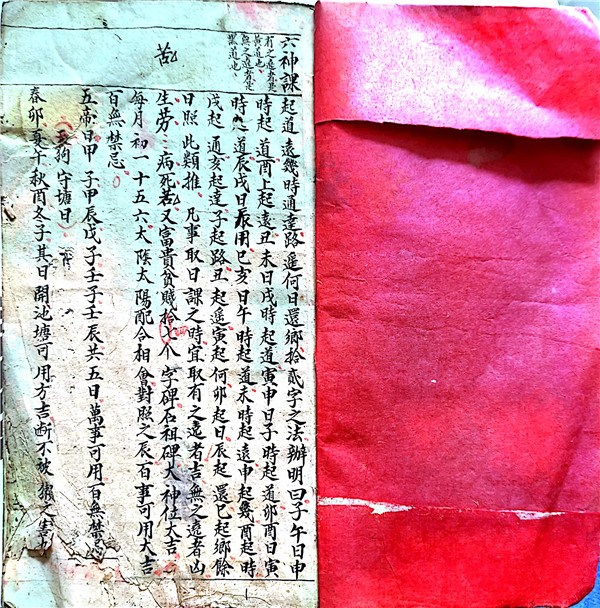 六神課
有之遠者是
黃道也
無之遠者是
黑道也
起道遠幾時通達路遥何日還鄉拾貳字之法辦明曰子午日申
時起道酉上起遠丑未日戌時起道寅申日子時起道卯酉日寅
時起道辰戌日辰用巳亥日午時起道未時起遠申起幾酉起時
戌起通亥起達子起路丑起遥寅起何卯起日辰起還巳起鄉餘
日照此類推凡事取日課之時宜取有之遠者吉無之遠者凶
生劳病死苦又富貴貧賤拾七个字碑石祖碑大神位大吉
每月初一十五六大陰太陽配合相會對照之辰百事可用大吉
百無禁忌
五帝日甲子甲辰戊子壬子壬辰共五日萬事可用百無禁忌
守塘日
春卯夏午秋酉冬子其日開池塘可用方吉断不被獺之害也